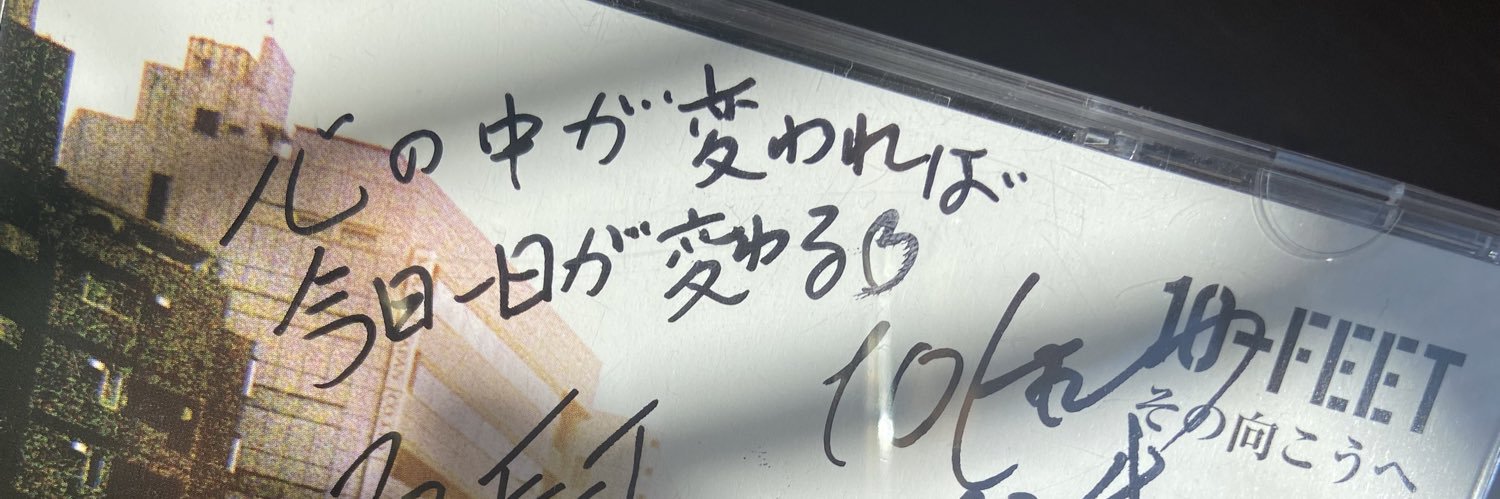 心の中が変われば
今日一日が変わる
10-FEET
その向こうへ